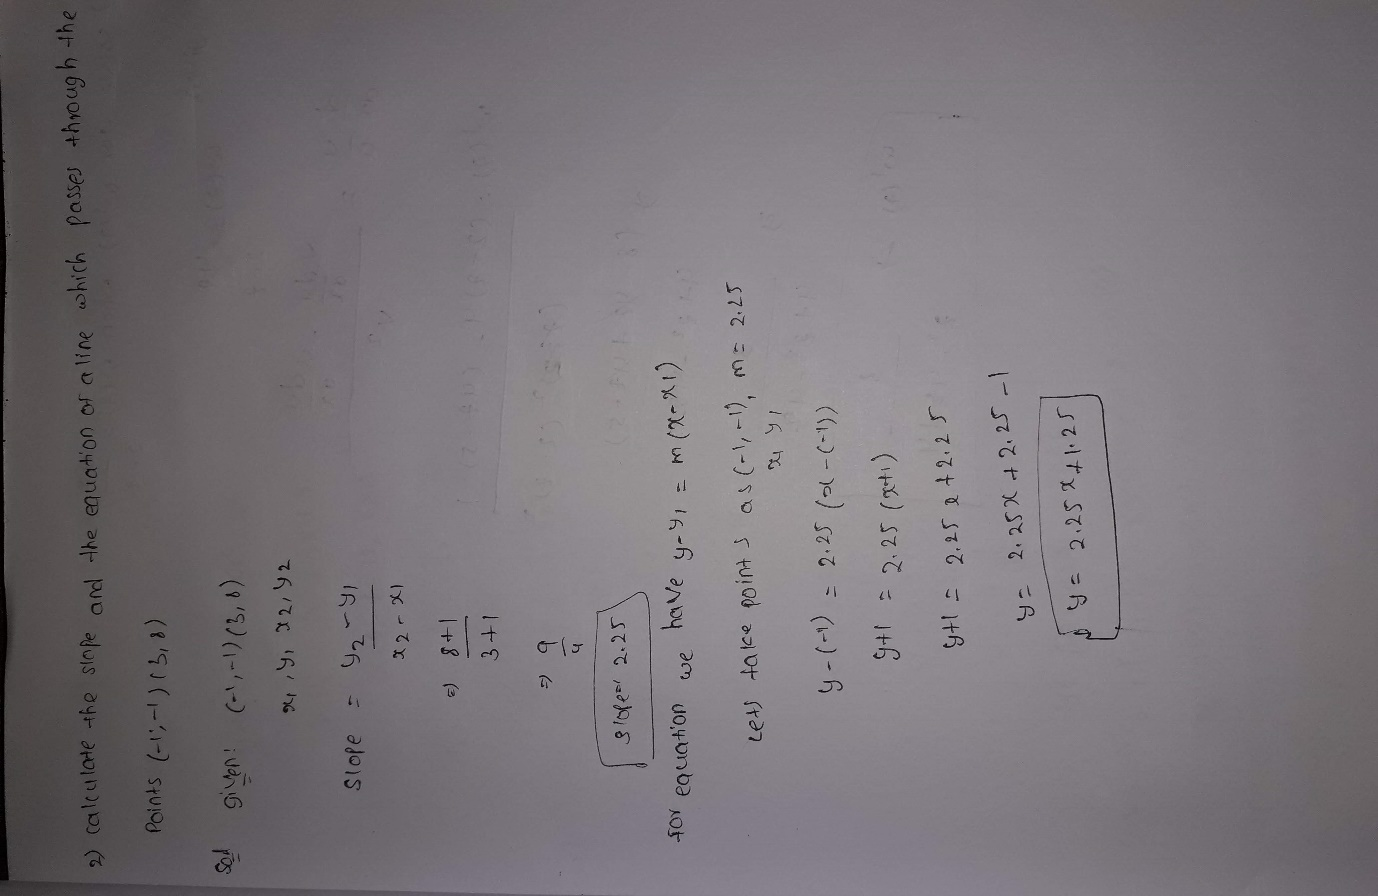 2) calculate the slope and the equation of a line which passes through the
Points (-1,-1) (3,8)
Sol given: (-1,-1) (3,8)
x1, y1 x2, y2
Slope = y2 - y1 / x2 - x1
=) 8+1 / 3+1
=) 9/4
slope = 2.25
for equation we have y-y1 = m(x-x1)
Lets take points as (-1,-1), m = 2.25
x1 y1
y-(-1) = 2.25 (x-(-1))
y+1 = 2.25 (x+1)
y+1 = 2.25 x + 2.25
y = 2.25x + 2.25 -1
y = 2.25 x + 1.25